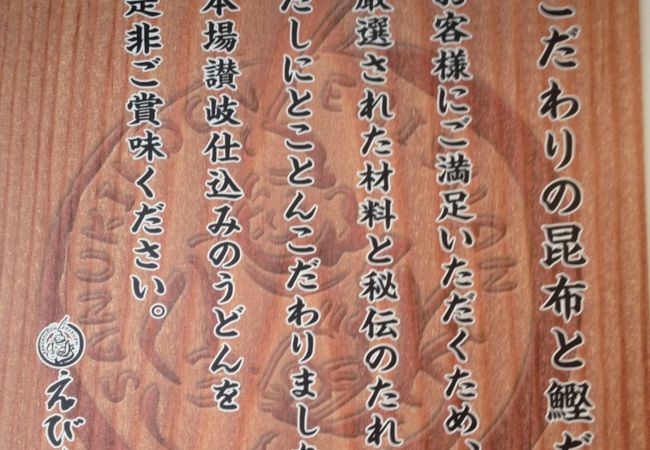 こだわりの昆布と鰹だ
お客様にご満足いただくため、
厳選された材料と秘伝のたれ
だしにとことんこだわりました
本場讃岐仕込みのうどんを
是非ご賞味ください。
えび
SANUKI